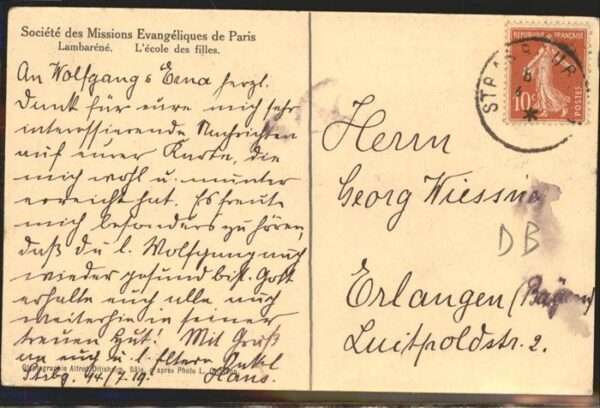 Société des Missions Evangéliques de Paris
Lambaréné. L'école des filles.
An Wolfgang & Erna herzl.
Dank für eure mich sehr
interessierende Nachrichten
auf eurer Karte, die
mich wohl u. munter
erreicht hat. Es freute
mich besonders zu hören,
daß du l. Wolfgang auch
wieder gesund bist. Gott
erhalte euch alle auch
weiterhin in seiner
treuen Hut! Mit Gruß
an euch u. l. Eltern Onkel
Hans.
Strbg. 14/7.19.
Phototypographie Alfred Ditisheim, Bâle, d'après Photo L.
RÉPUBLIQUE FRANÇAISE
10c
POSTES
STRASSBURG
Herrn
Georg Wiessner
DB
Erlangen (Bayern)
Luitpoldstr. 2.